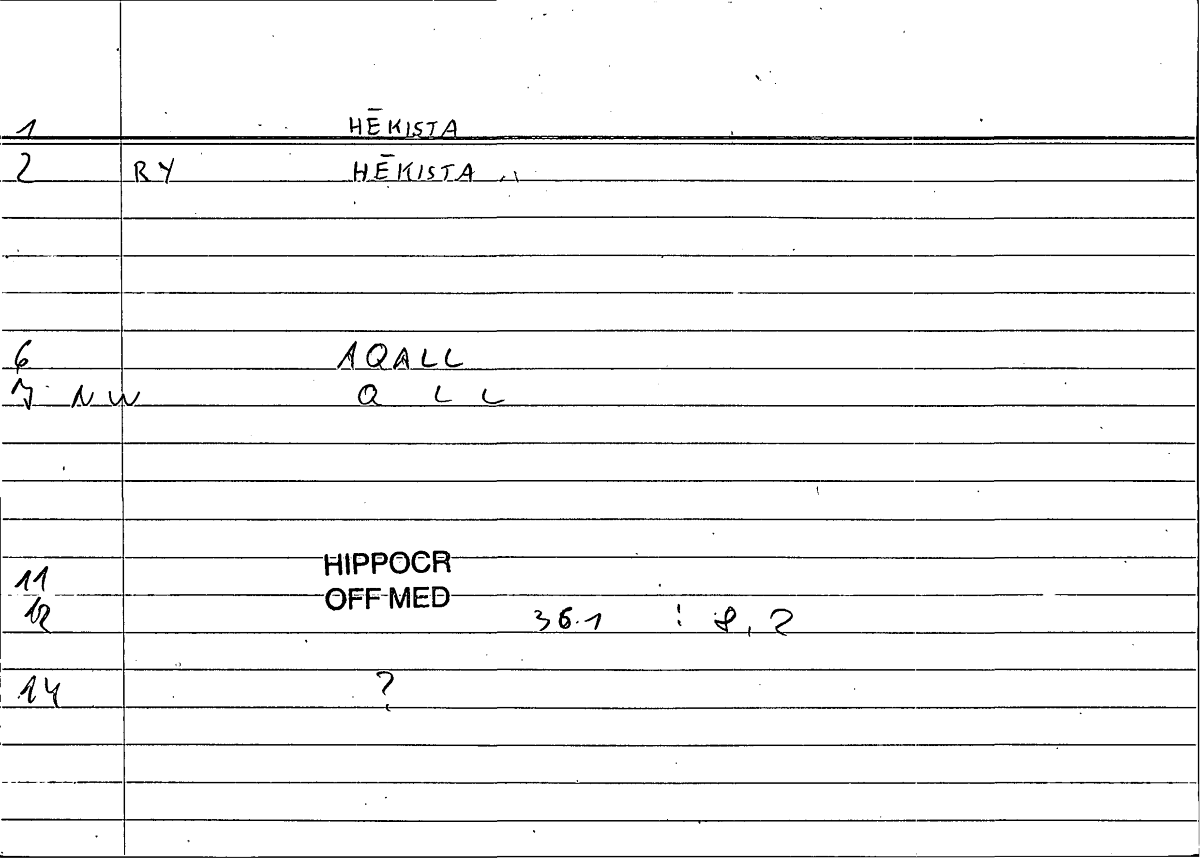 1 HĒKISTA
2 RY HĒKISTA
6 AQALL
7 NW Q L L
11 HIPPOCR
12 OFF MED 36.1 : 8, 2
14 ?